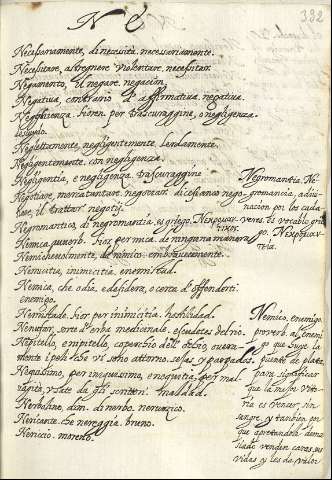 N E
332
Necessariamente, di necessità. necessariamente.
Necessitare, astregnere violentare. necessitar.
Negamento, il negare. negación.
Negativa, contrario d'affirmativa. negativa.
Negghienza. fioren. per trascuraggine, o negligenza.
Neglettamente, negligentemente. lerdamente.
Negligentemente. con negligenza.
Negligentia, e negligenza. trascuraggine
Negotiare, mercatantare. negotiar. dicesi anco nego
tiare, il trattar negotij.
Negromantico, di negromantia. es griego. Νεκρομαν
τικος.
Nemica. per mica. de ninguna manera
Nemichevolmente, da nimico. enemigablemente.
Nemicitia, inimicitia. enemistad.
Nemico, che odia, e desidera, o cerca d'offenderti.
enemigo.
Nemistade. fior. per inimicitia. hostilidad.
Nenufar, sorte d'erba medicinale. escudetes del rio.
Nepitello, e nipitello, coperchio dell'occhio, overa
mente i peli che vi sono attorno. sejas, y parpados.
Nequissimo, per iniquissimo. e nequitia, per mal
vagità, usate da gli scrittori. maldad.
Nerbolino, dim. di nerbo. nervuezico.
Nericante. che nereggia. bruno.
Nericcio. moreno.
Negromantia. Ne
gromancia, adivi
nación por los cada
veres. es vocablo grie
go. Νεκρομαν
τεία.
Nemico, enemigo.
al enemi
go que huye la
puente de plata.
para significar
que la mejor vito
ria es vencer, sin
sangre, y tambien por
que apretandole dema
siado venden caras sus
vidas y les da valor